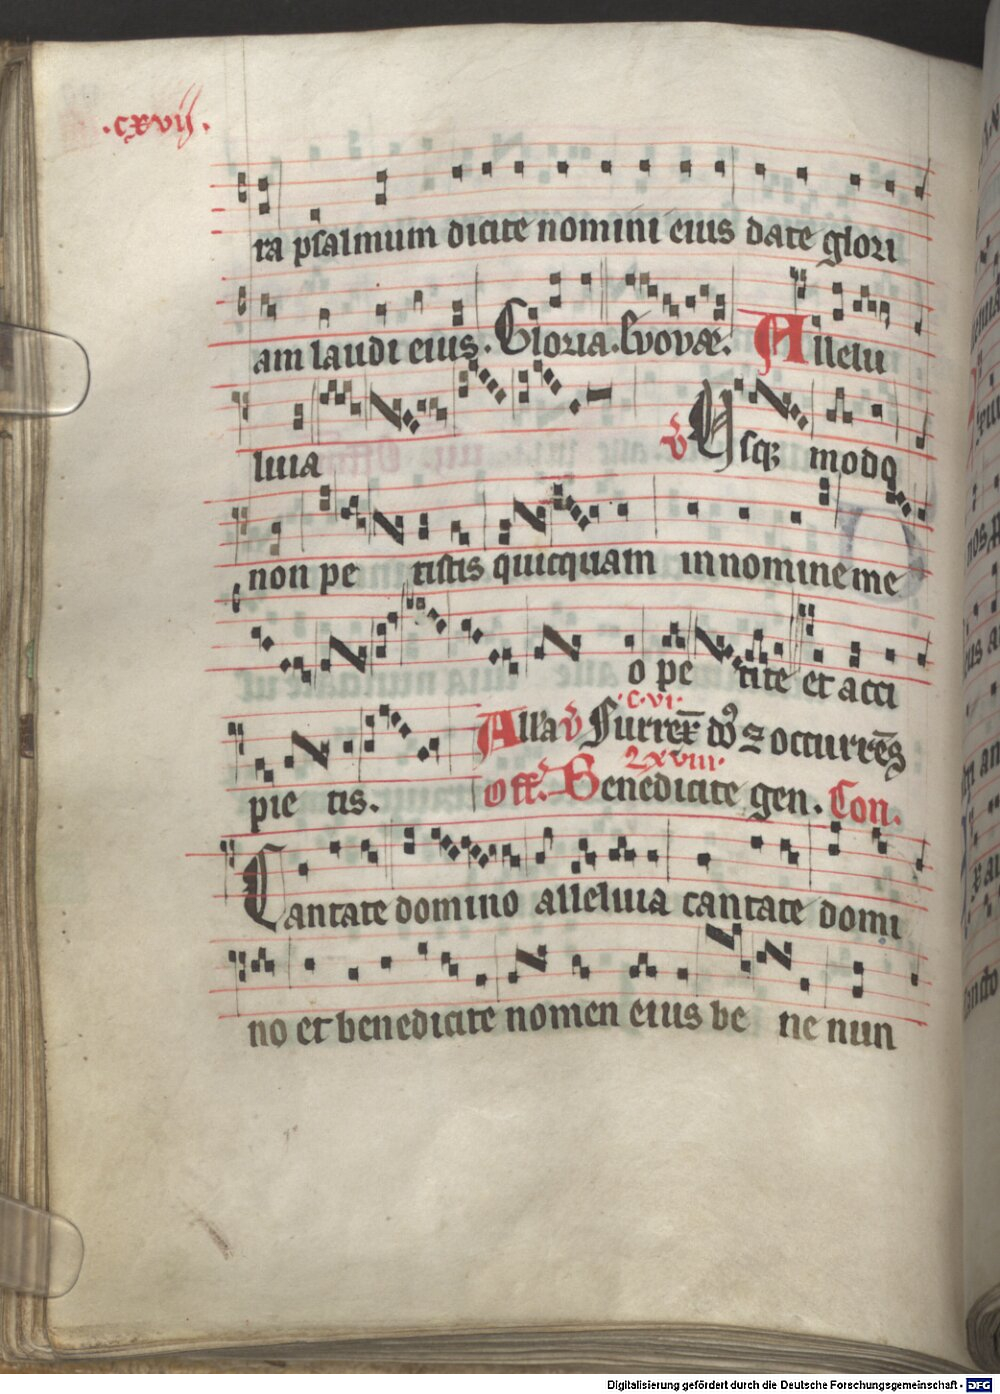 .cxvij.
ra psalmum dicite nomini eius date glori
am laudi eius. Gloria. Evovae. Allelu
luia V Usq modo
non pe tistis quicquam in nomine me
o pe tite et acci
.c.vi.
pie tis. All'a V Surrex̄ dn̄s z occurrēs
lxviii.
Off. Benedicite gen. Con.
Cantate domino alleluia cantate domi
no et benedicite nomen eius be ne nun
Digitalisierung gefördert durch die Deutsche Forschungsgemeinschaft - DFG